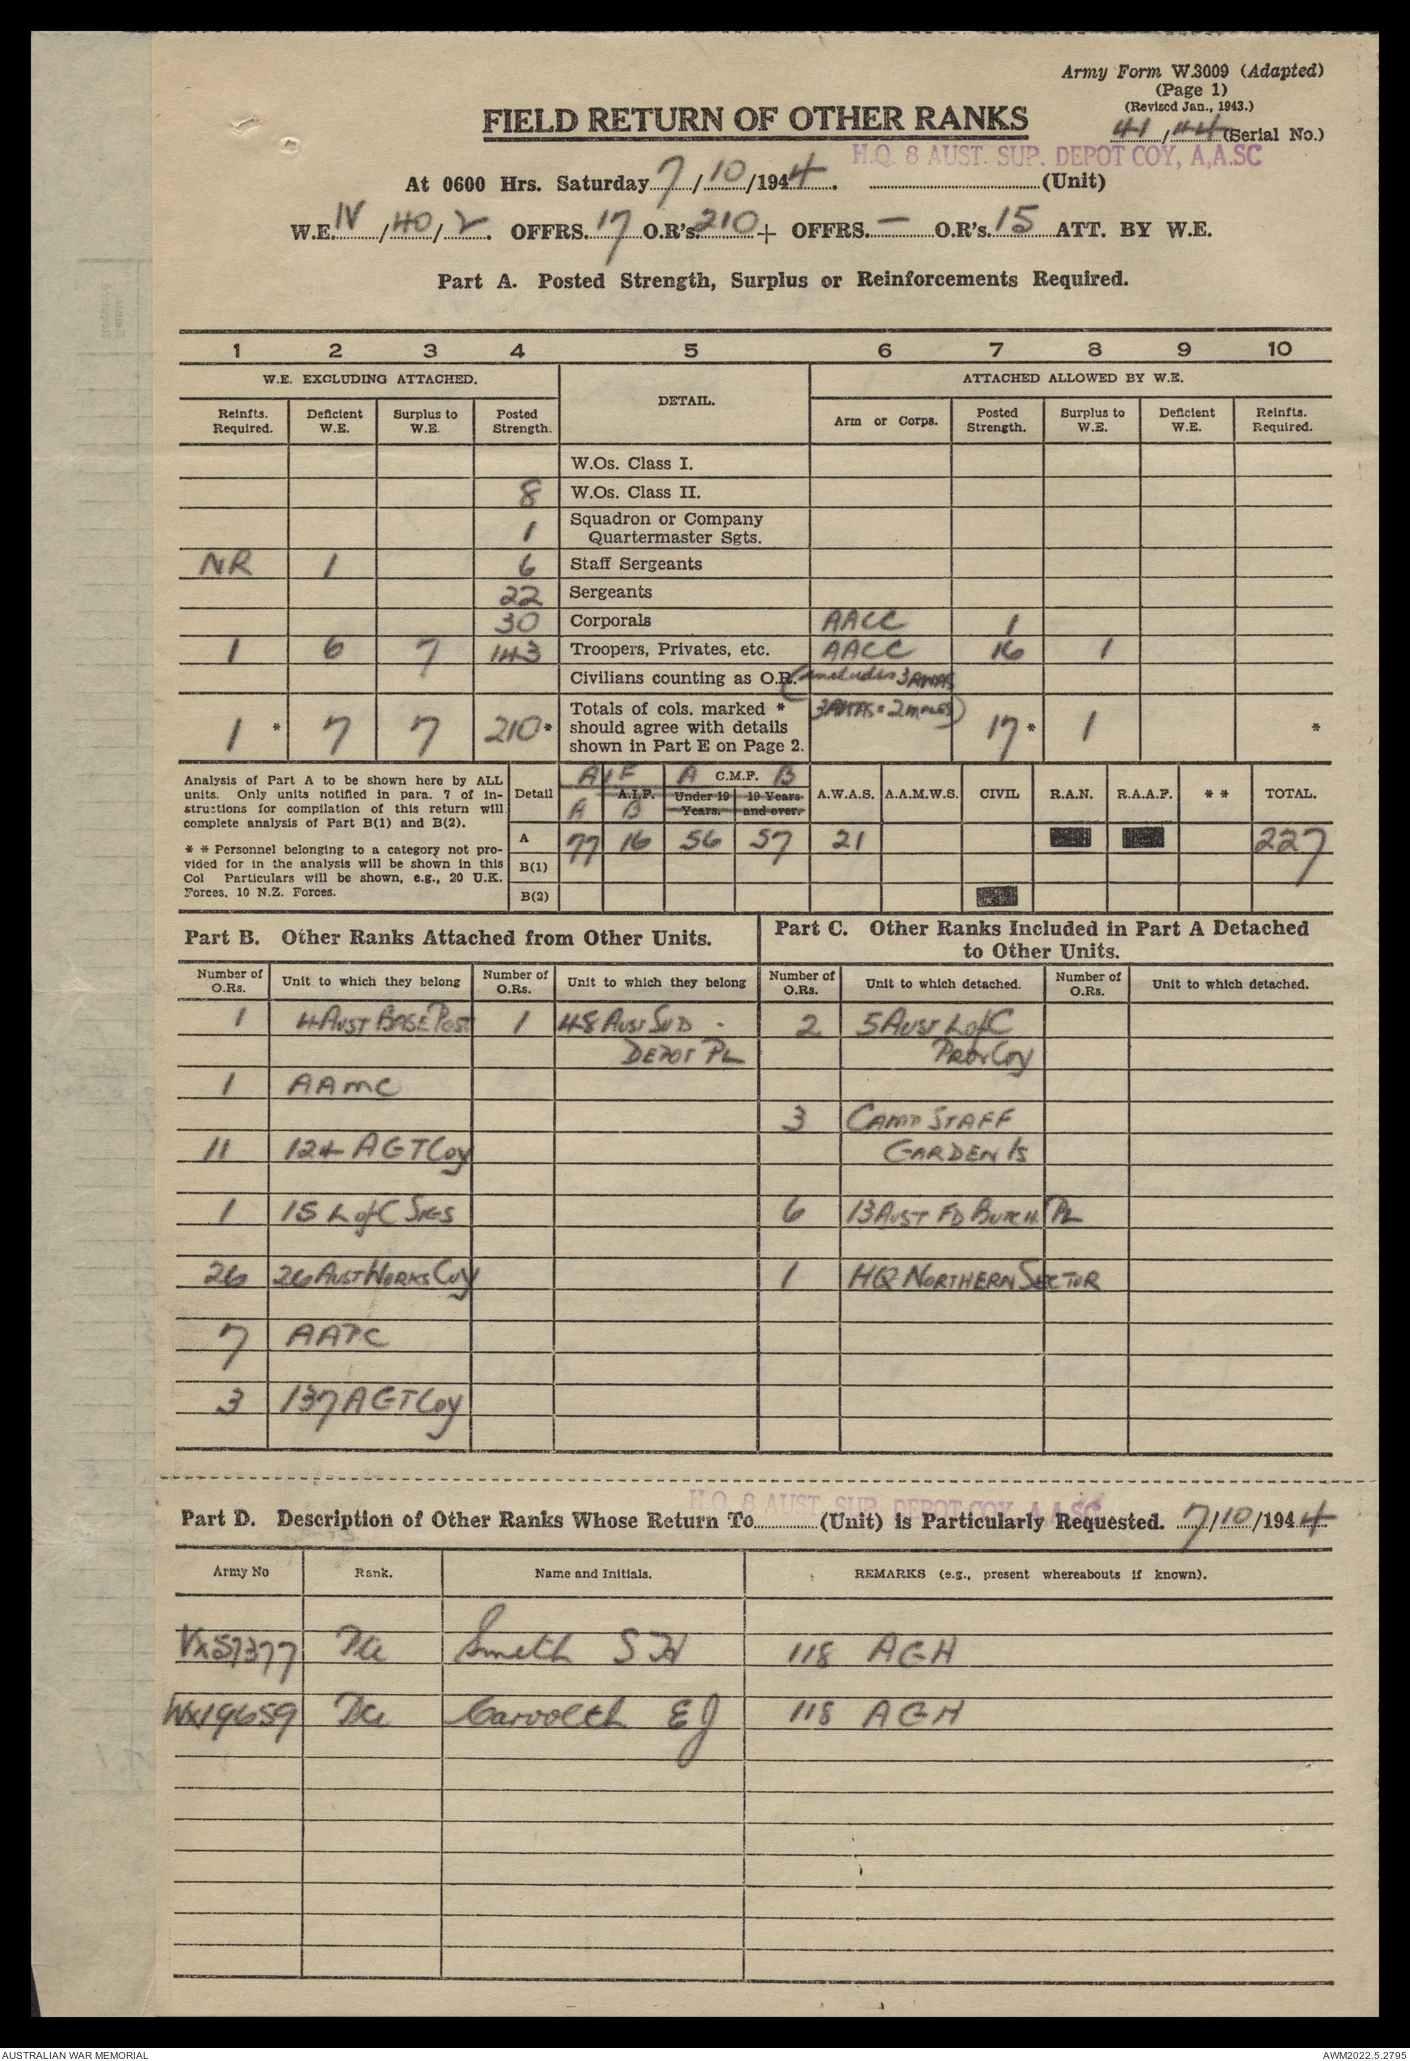 Army Form W.3009 (Adapted)
(Page 1)
(Revised Jan., 1943.)
41/44 (Serial No.)
FIELD RETURN OF OTHER RANKS
H.Q. 8 AUST. SUP. DEPOT COY, A,A.SC
At 0600 Hrs. Saturday 7/10/1944. (Unit)
W.E. IV/40/2. OFFRS. 17 O.R's. 210 + OFFRS. — O.R's. 15 ATT. BY W.E.
Part A. Posted Strength, Surplus or Reinforcements Required.
1 2 3 4 5 6 7 8 9 10
W.E. EXCLUDING ATTACHED. DETAIL. ATTACHED ALLOWED BY W.E.
Reinfts. Required. Deficient W.E. Surplus to W.E. Posted Strength. Arm or Corps. Posted Strength. Surplus to W.E. Deficient W.E. Reinfts. Required.
W.Os. Class I.
8 W.Os. Class II.
1 Squadron or Company Quartermaster Sgts.
NR 1 6 Staff Sergeants
22 Sergeants
30 Corporals AACC 1
1 6 7 143 Troopers, Privates, etc. AACC 16 1
Civilians counting as O.R. (includes 3 AWAS
Totals of cols. marked * 3 AWAS = 2 males)
should agree with details
1 * 7 7 210 * shown in Part E on Page 2. 17 * 1 *
Analysis of Part A to be shown here by ALL
units. Only units notified in para. 7 of in-
structions for compilation of this return will
complete analysis of Part B(1) and B(2).
* * Personnel belonging to a category not pro-
vided for in the analysis will be shown in this
Col Particulars will be shown, e.g., 20 U.K.
Forces, 10 N.Z. Forces.
AIF A C.M.F. B
Detail A.I.F. Under 19 Years. 19 Years and over. A.W.A.S. A.A.M.W.S. CIVIL R.A.N. R.A.A.F. * * TOTAL.
A B
A 77 16 56 57 21 227
B(1)
B(2)
Part B. Other Ranks Attached from Other Units.
Part C. Other Ranks Included in Part A Detached
to Other Units.
Number of O.Rs. Unit to which they belong Number of O.Rs. Unit to which they belong Number of O.Rs. Unit to which detached. Number of O.Rs. Unit to which detached.
1 4 AUST BASE POST 1 48 AUST SUP 2 5 AUST L of C
DEPOT PL PROV COY
1 AAMC
3 CAMP STAFF
11 124 AGT Coy GARDEN IS
1 15 L of C SIGS 6 13 AUST FD BUTCH PL
26 26 AUST WORKS COY 1 HQ NORTHERN SECTOR
7 AAPC
3 137 AGT Coy
H.Q. 8 AUST. SUP. DEPOT COY, A,A.SC
Part D. Description of Other Ranks Whose Return To (Unit) is Particularly Requested. 7/10/1944
Army No Rank. Name and Initials. REMARKS (e.g., present whereabouts if known).
VX57377 Pte Smith S H 118 AGH
WX19659 Pte Carvolth E J 118 AGH
AUSTRALIAN WAR MEMORIAL
AWM2022.5.2795